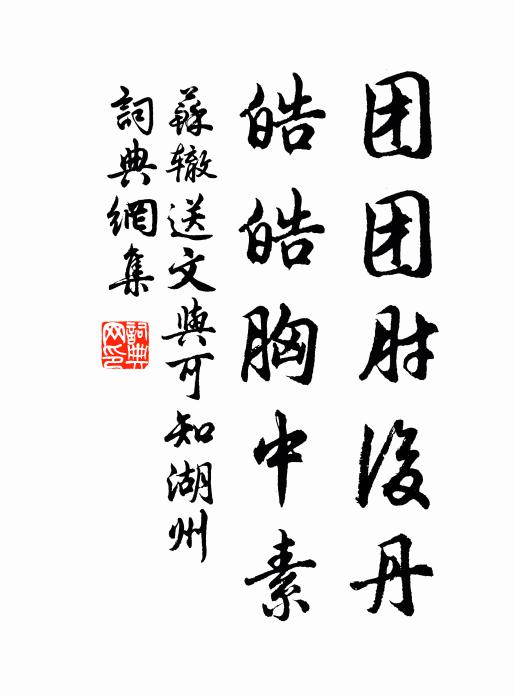 团团肘後丹
皓皓胸中素
蘇辙送文與可知湖州
詞典網集
詞典網印